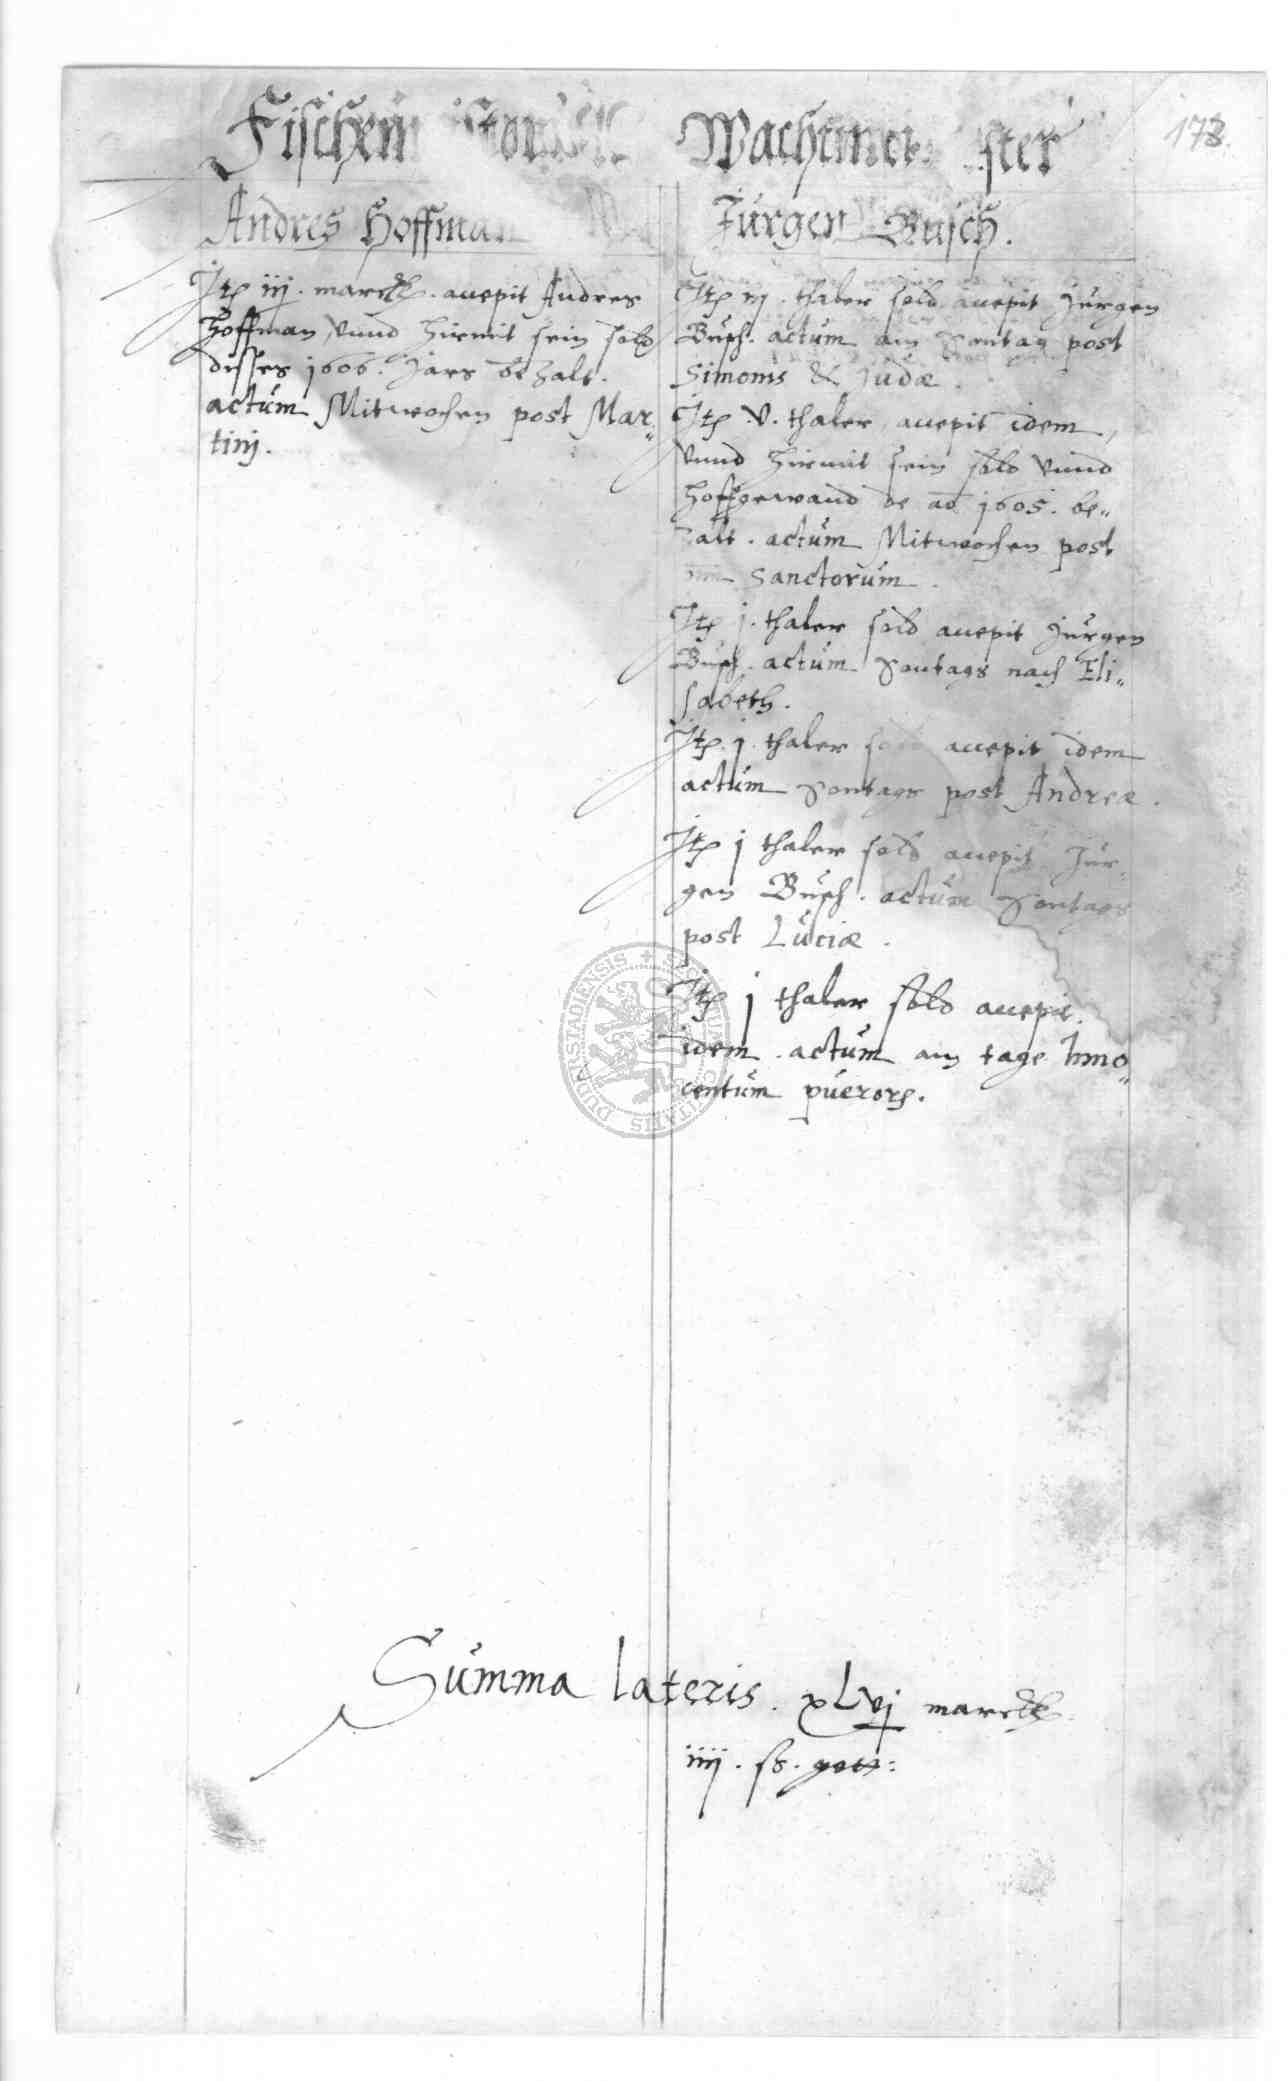 178.
Fischem
Andres Hoffman
Jtem iij. marck. accepit Andres
Hoffman, vnnd hirmit sein sold
disses 1606. Jars bezalt.
actum Mitwochen post Mar„
tinj.
Wachtmeister
Jürgen Busch.
Jtem iij. thaler sold accepit Jürgen
Busch. actum am Sontag post
Simonis & Judæ.
Jtem .v. thaler, accepit idem,
vnnd hirmit sein sold vnnd
Hoffgewand de ao 1605. be„
zalt. actum Mitwochen post
Sanctorum.
Jtem j. thaler sold accepit Jürgen
Busch. actum Sontags nach Eli„
sabeth.
Jtem. j. thaler sold accepit idem
actum Sontags post Andreæ.
Jtem j thaler sold accepit Jür„
gen Busch. actum Sontags
post Luciæ.
Jtem j thaler sold accepit
idem. actum am tage Inno„
centum puerorum.
SECRETUM CIVITATIS DUDERSTADIENSIS
Summa lateris. xLvj marck
iiij. ß. gott: